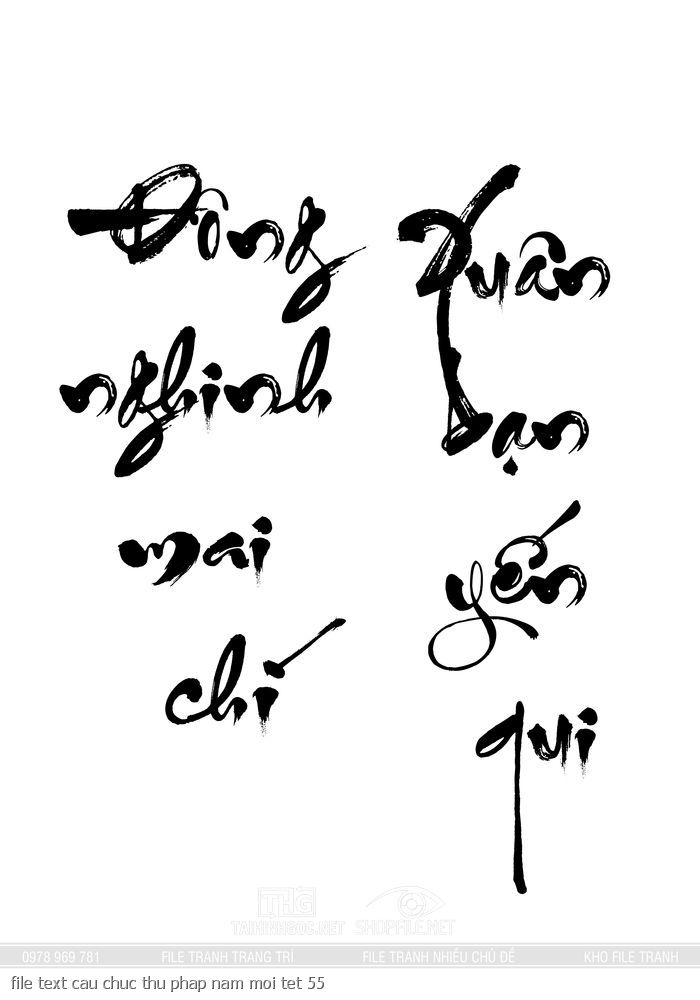 Đông
nghinh
mai
chí
Xuân
bạn
yến
qui
THG
TAIHINHGOC.NET SHOPFILE.NET
0978 969 781 FILE TRANH TRANG TRÍ FILE TRANH NHIỀU CHỦ ĐỀ KHO FILE TRANH
file text cau chuc thu phap nam moi tet 55